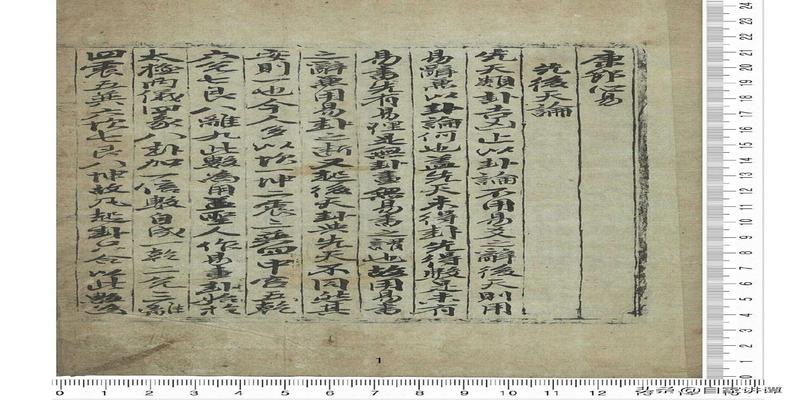 康節心易
先後天論
先天類卦吉凶止以卦論不用易爻之辭後天則用
易辭兼以卦論何也盖先天未得卦先得數是未有
易書先有易理是無卦畫無易書之謂也故用易書
之辭兼用易卦之断又起後天卦與先天不同其
則一也今人多以坎一坤二震三巽四中宫五乾
六兑七艮八離九此數為用盖聖人作易畫卦始於
太極两儀四象八卦加一倍數自成一乾二兑三離
四震五巽六坎七艮八坤故凡起卦只合以此數為
1
0 1 2 3 4 5 6 7 8 9 10 11 12 13
头条